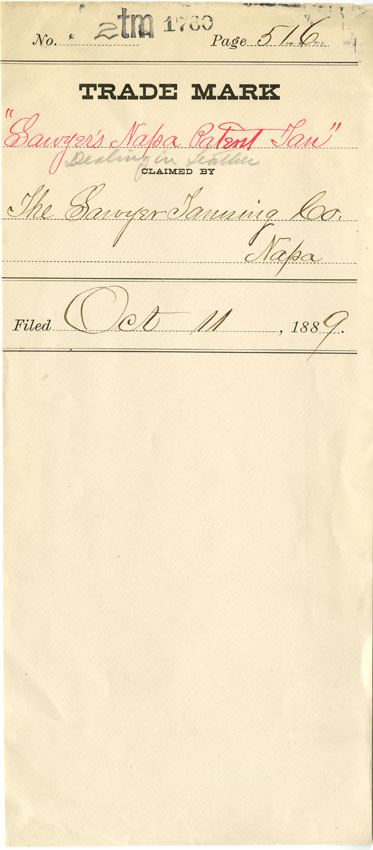 No. 2 tm 1760 Page 516
TRADE MARK
"Sawyer's Napa Patent Tan"
Dealing in leather
CLAIMED BY
The Sawyer Tanning Co.
Napa
Filed Oct 11, 1889.